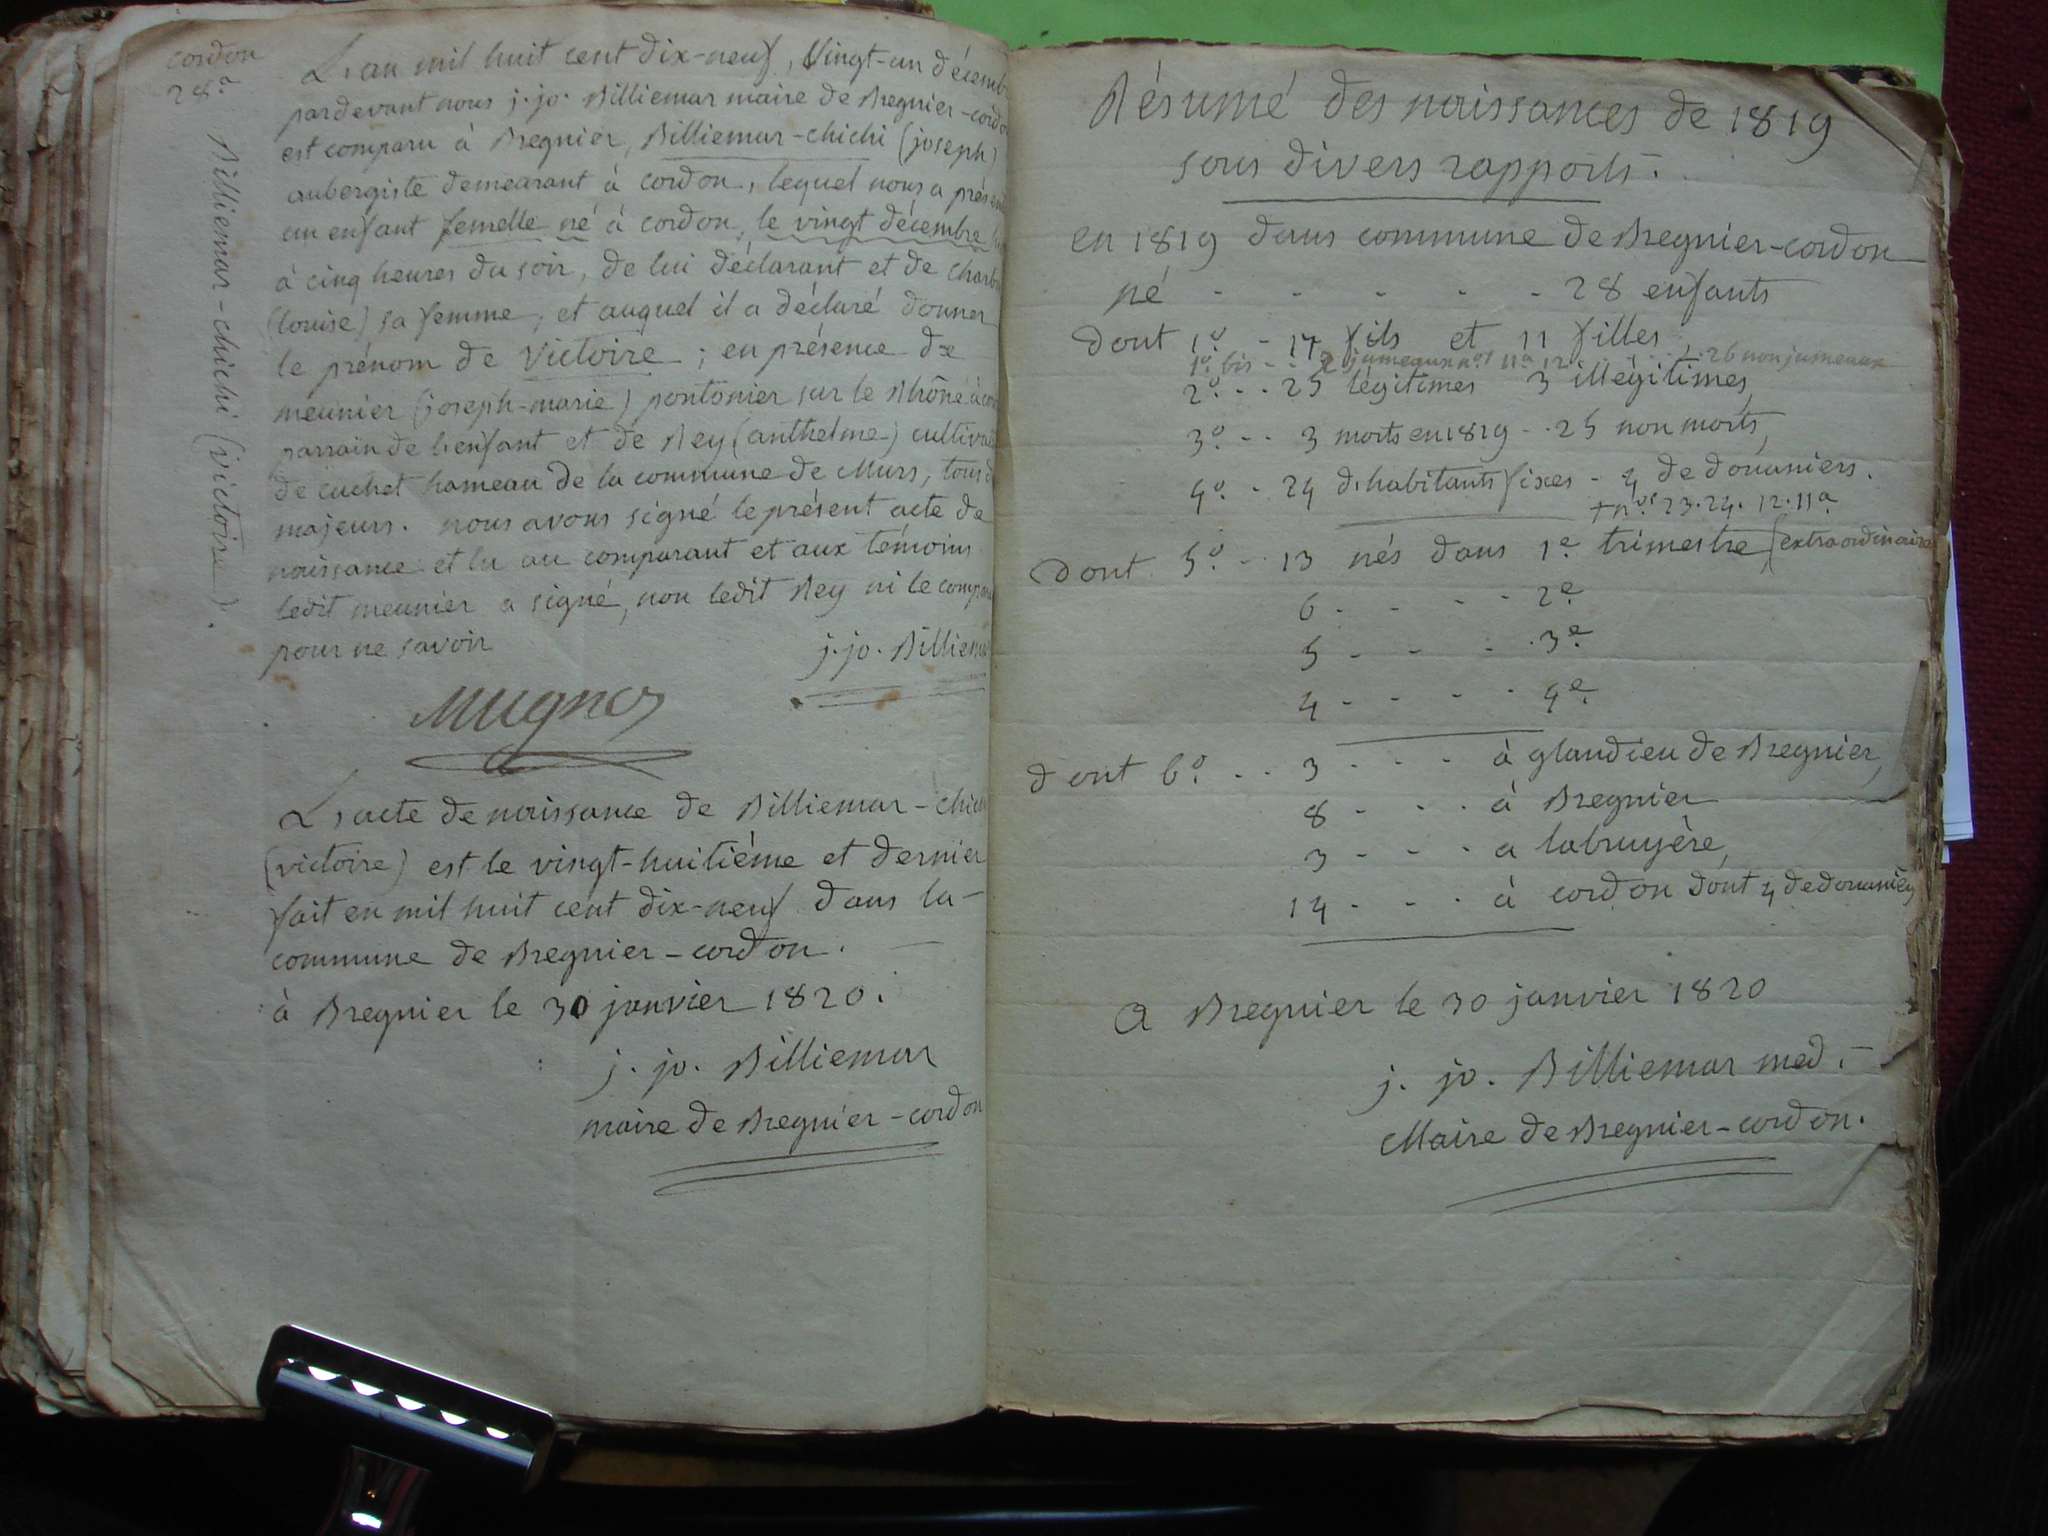 cordon
28e
Billiemar-chichi (victoire).
L'an mil huit cent dix-neuf, vingt-un décemb
pardevant nous j. jo. Billiemar maire de Bregnier-cordo
est comparu à Bregnier, Billiemar-chichi (joseph)
aubergiste demeurant à cordon, lequel nous a présen
un enfant femelle né à cordon, le vingt décembre
à cinq heures du soir, de lui déclarant et de Charb
(louise) sa femme, et auquel il a déclaré donner
le prénom de Victoire ; en présence de
meunier (joseph-marie) pontonier sur le Rhône à co
parrain de l'enfant et de Rey (anthelme) cultiva
de cuchet hameau de la commune de Murs, tous d
majeurs. nous avons signé le présent acte de
naissance et lu au comparant et aux témoins
ledit meunier a signé, non ledit Rey ni le compa
pour ne savoir
j. jo. Billiem
L'acte de naissance de Billiemar-chic
(victoire) est le vingt-huitiéme et dernier
fait en mil huit cent dix-neuf dans la
commune de Bregnier-cordon.
à Bregnier le 30 janvier 1820.
j. jo. Billiemar
maire de Bregnier-cordon
Résumé des naissances de 1819
sous divers rapports.
en 1819 dans commune de Bregnier-cordon
né - - - - - 28 enfants
dont 1o - 17 fils et 11 filles,
1o bis - - 2 jumeaux nos 11a 12 . . 26 non jumeaux
2o - - 25 légitimes 3 illégitimes,
3o - - 3 morts en 1819 - . 25 non morts,
4o - 24 d'habitants fixes - 4 de douaniers.
+ nos 23. 24. 12. 11a
dont 5o - - 13 nés dans 1e trimestre (extraordinaire
6 - - - - 2e
5 - - - . 3e
4 - - - . 4e
dont 6o - - 3 - - - à glandieu de Bregnier,
8 - - . à Bregnier
3 - - . a labruyère,
14 - - . à cordon dont 4 de douaniers
A Bregnier le 30 janvier 1820
j. jo. Billiemar med.
Maire de Bregnier-cordon.